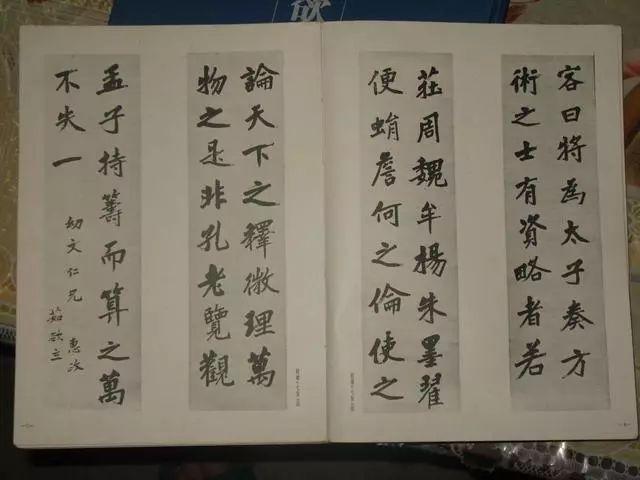 客曰將為太子奏方
術之士有資略者若
莊周魏牟楊朱墨翟
便蜎詹何之倫使之
論天下之釋微理萬
物之是非孔老覽觀
孟子持籌而算之萬
不失一
幼文仁兄 惠政
茹欲立